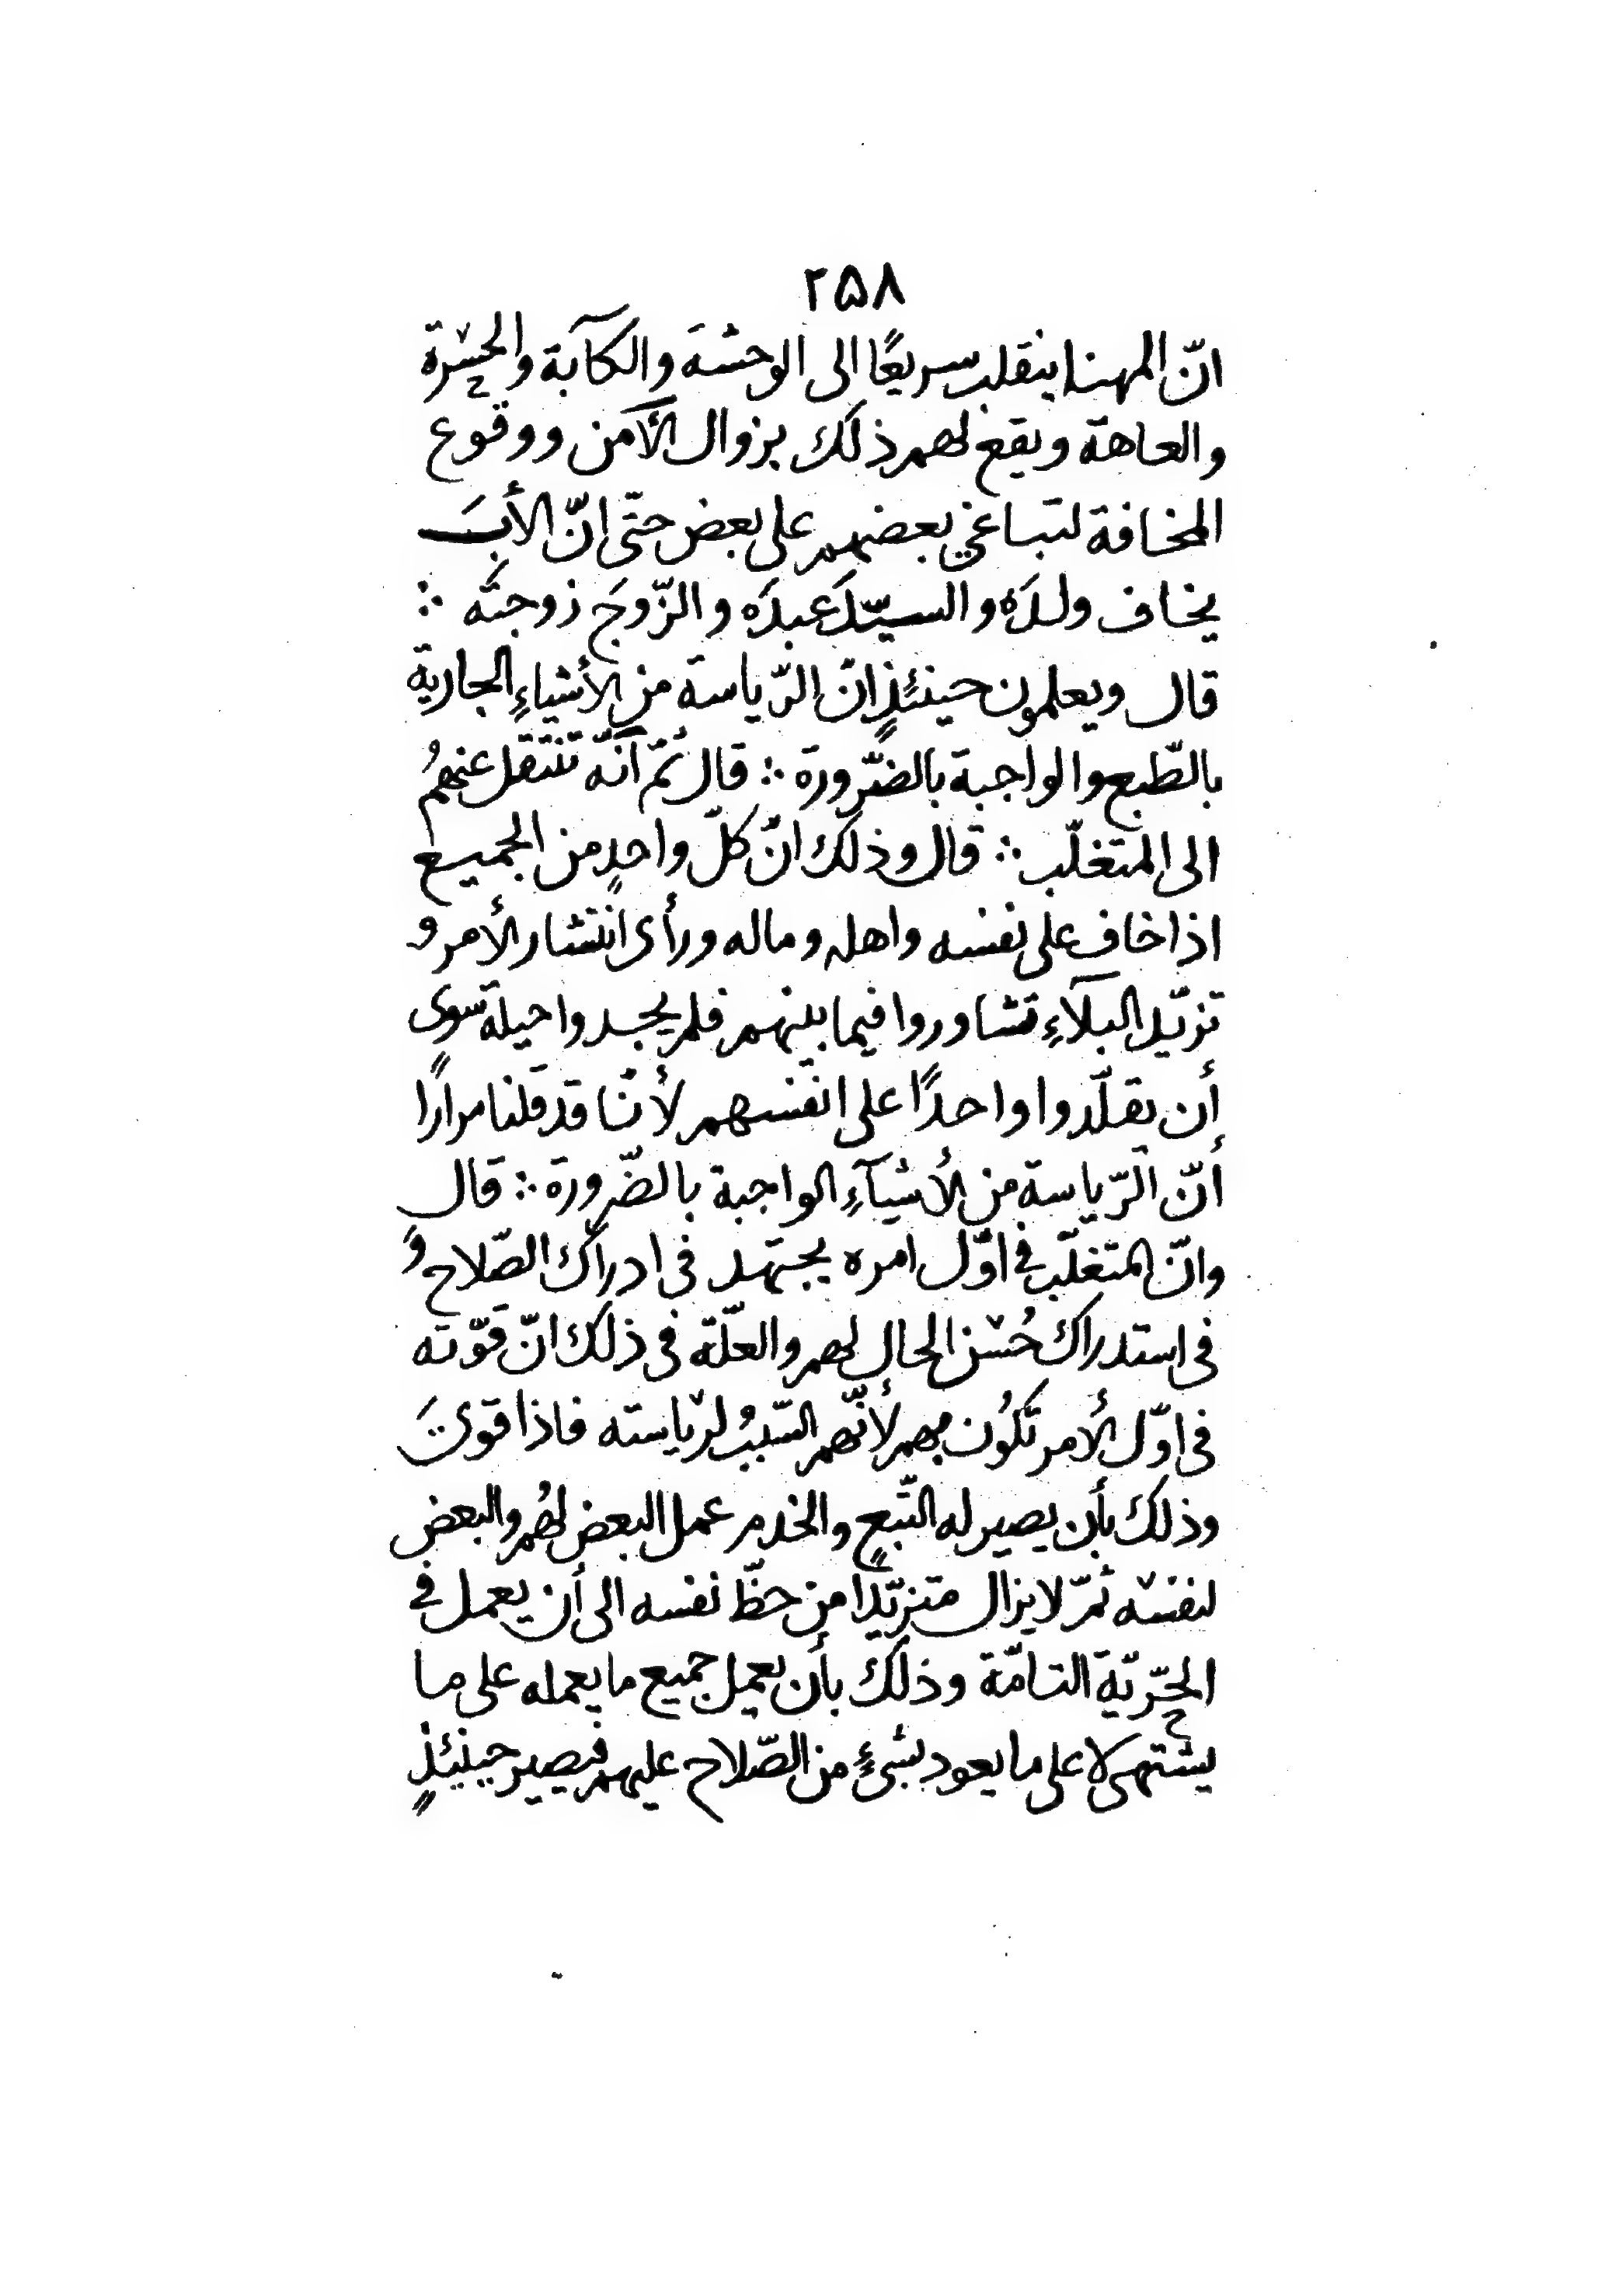 ٢٥٨
انّ المهنا ينقلب سريعًا الى الوحشة والكآبة والحسْرة
والعاهة ويقع لهم ذلك بزوال الأمن ووقوع
المخافة لتباغي بعضهم على بعض حتّى انّ الأبَ
يخاف ولدَه والسيّدَ عبدَه والزّوجَ زوجتَه ∴
قال ويعلمون حينئذٍ انّ الرّياسة من الأشياءِ الجارية
بالطّبع والواجبة بالضّرورة ∴ قال ثمّ انّه تنتقل عنهمُ
الى المتغلّب ∴ قال وذلك انّ كلّ واحدٍ من الجميع
اذا خاف على نفسه واهله وماله ورأى انتشار الأمر و
تزيّد البلآءِ تشاوروا فيما بينهم فلم يجدوا حيلة سوى
أن يقلّدوا واحدًا على انفسهم لأنّا قد قلنا مرارًا
أنّ الرّياسة من الأشيآءِ الواجبة بالضّرورة ∴ قال
وانّ المتغلّب في اوّل امره يجتهد فى ادراك الصّلاح و
فى استدراك حُسْن الحال لهم والعلّة فى ذلك انّ قوّته
فى اوّل الأمر تكوُن بهم لأنّهم السّببُ لريْاسته فاذا قوىَ
وذلك بأن يصير له التّبع والخدم عمل البعض لهُم والبعض
لنفسْه ثمّ لا يزال متزيّدًا من حظّ نفسه الى أن يعمل في
الحرّيّة التامّة وذلك بأن يعمل جميع ما يعمله على ما
يشتهى لا على ما يعود بشئٍ من الصّلاح عليهم فيصير حينئذٍ